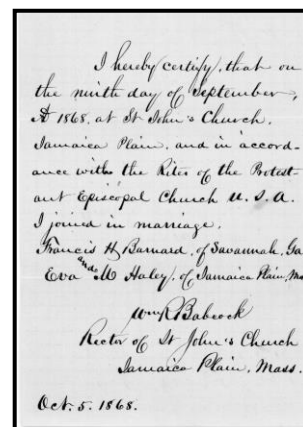 I hereby certify, that on
the ninth day of September,
AD 1868, at St John's Church,
Jamaica Plain, and in accord-
ance with the Rites of the Protest-
ant Episcopal Church U. S. A.
I joined in marriage.
Francis H Barnard, of Savannah, Ga
and
Eva M Haley, of Jamaica Plain, Ma
Wm R Babcock
Rector of St John's Church
Jamaica Plain, Mass.
Oct. 5. 1868.